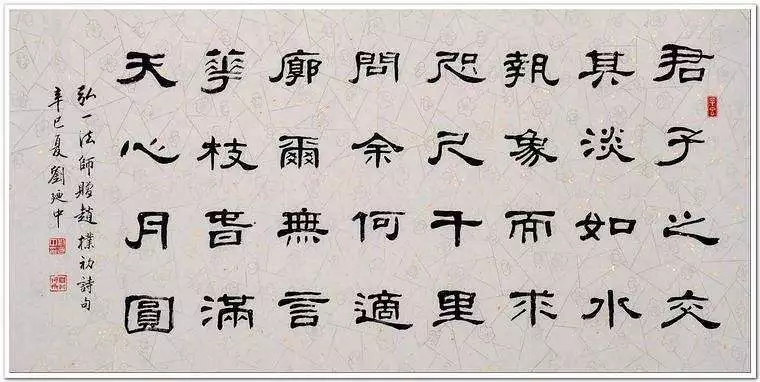 君子之交
其淡如水
執象而求
咫尺千里
問余何適
廓爾無言
華枝春滿
天心月圓
弘一法師贈趙樸初詩句
辛巳夏劉廼中